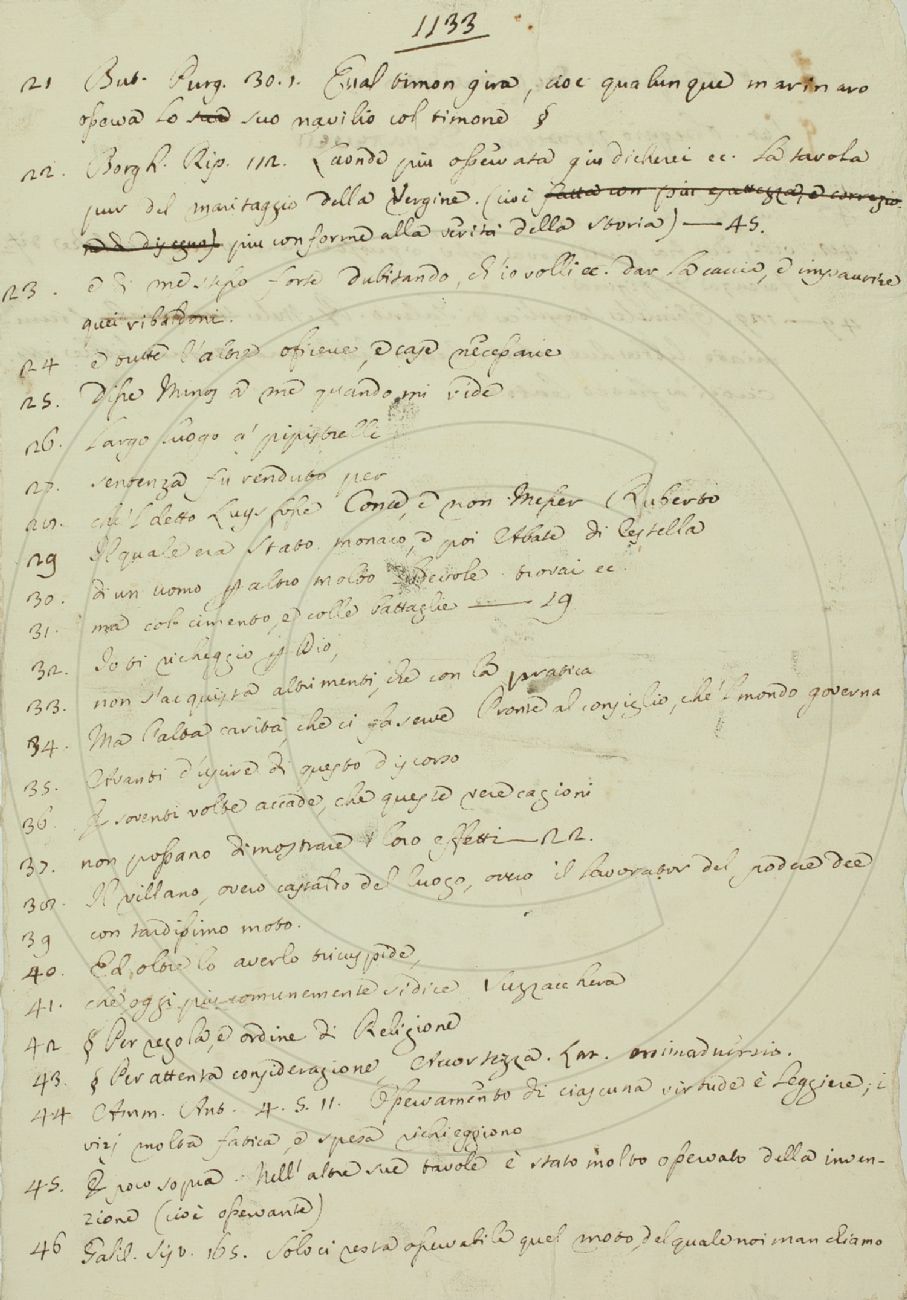 1133
21 But. Purg. 30. 1. Qual timon gira, cioè qualunque marinaro
osserva lo sued suo navilio col timone §
22. Borgh. Rip. 112. Laonde più osservata giudicherei ec. la tavola
pur del maritaggio della Vergine. (cioè fatta con più esattezza, e correzio-
ne di disegno) più conforme alla verità della storia) — 45.
23. e di me stesso forte dubitando, ch'io volli ec. dar la caccia, e impaurire
quei ribaldoni.
24 e oltre l'altre officine, e case necessarie
25. Disse Minos a me quando mi vide
26. Largo luogo a' pipistrelli
27. sentenza fu renduta per
28. che'l detto Luys fosse Conte, e non Messer Ruberto
29 Il quale era stato monaco, e poi Abate di Testella
30. di un uomo p altro molto trovai ec.
31. ma col cimento, e colle battaglie — 19
32. Io ti richeggio p Dio,
33. non s'acquista altrimenti, che con la pratica
34. Ma l'alta carità, che ci fa serve Pronte al consiglio, che'l mondo governa
35. Avanti d'uscire di questo discorso
36. E soventi volte accade, che queste vere cagioni
37. non possano dimostrare i loro effetti — 22.
38. Il villano, overo castaldo del luogo, overo il lavorator del podere dee
39 con tardissimo moto.
40. Ed oltre lo averlo tricuspide,
41. che oggi più comunemente si dice Suzzacchera
42 § Per regola, e ordine di Religione
43. § Per attenta considerazione Accortezza. Lat. animadversio.
44 Amm. Ant. 4. 5. 11. Osservamento di ciascuna virtude è leggiere; i
vizj molta fatica, e spesa richieggiono
45. E poco sopra. Nell'altre sue tavole è stato molto osservato della inven-
zione (cioè osservante)
46 Galil. Sist. 165. Solo ci resta osservabile quel moto, del quale noi manchiamo